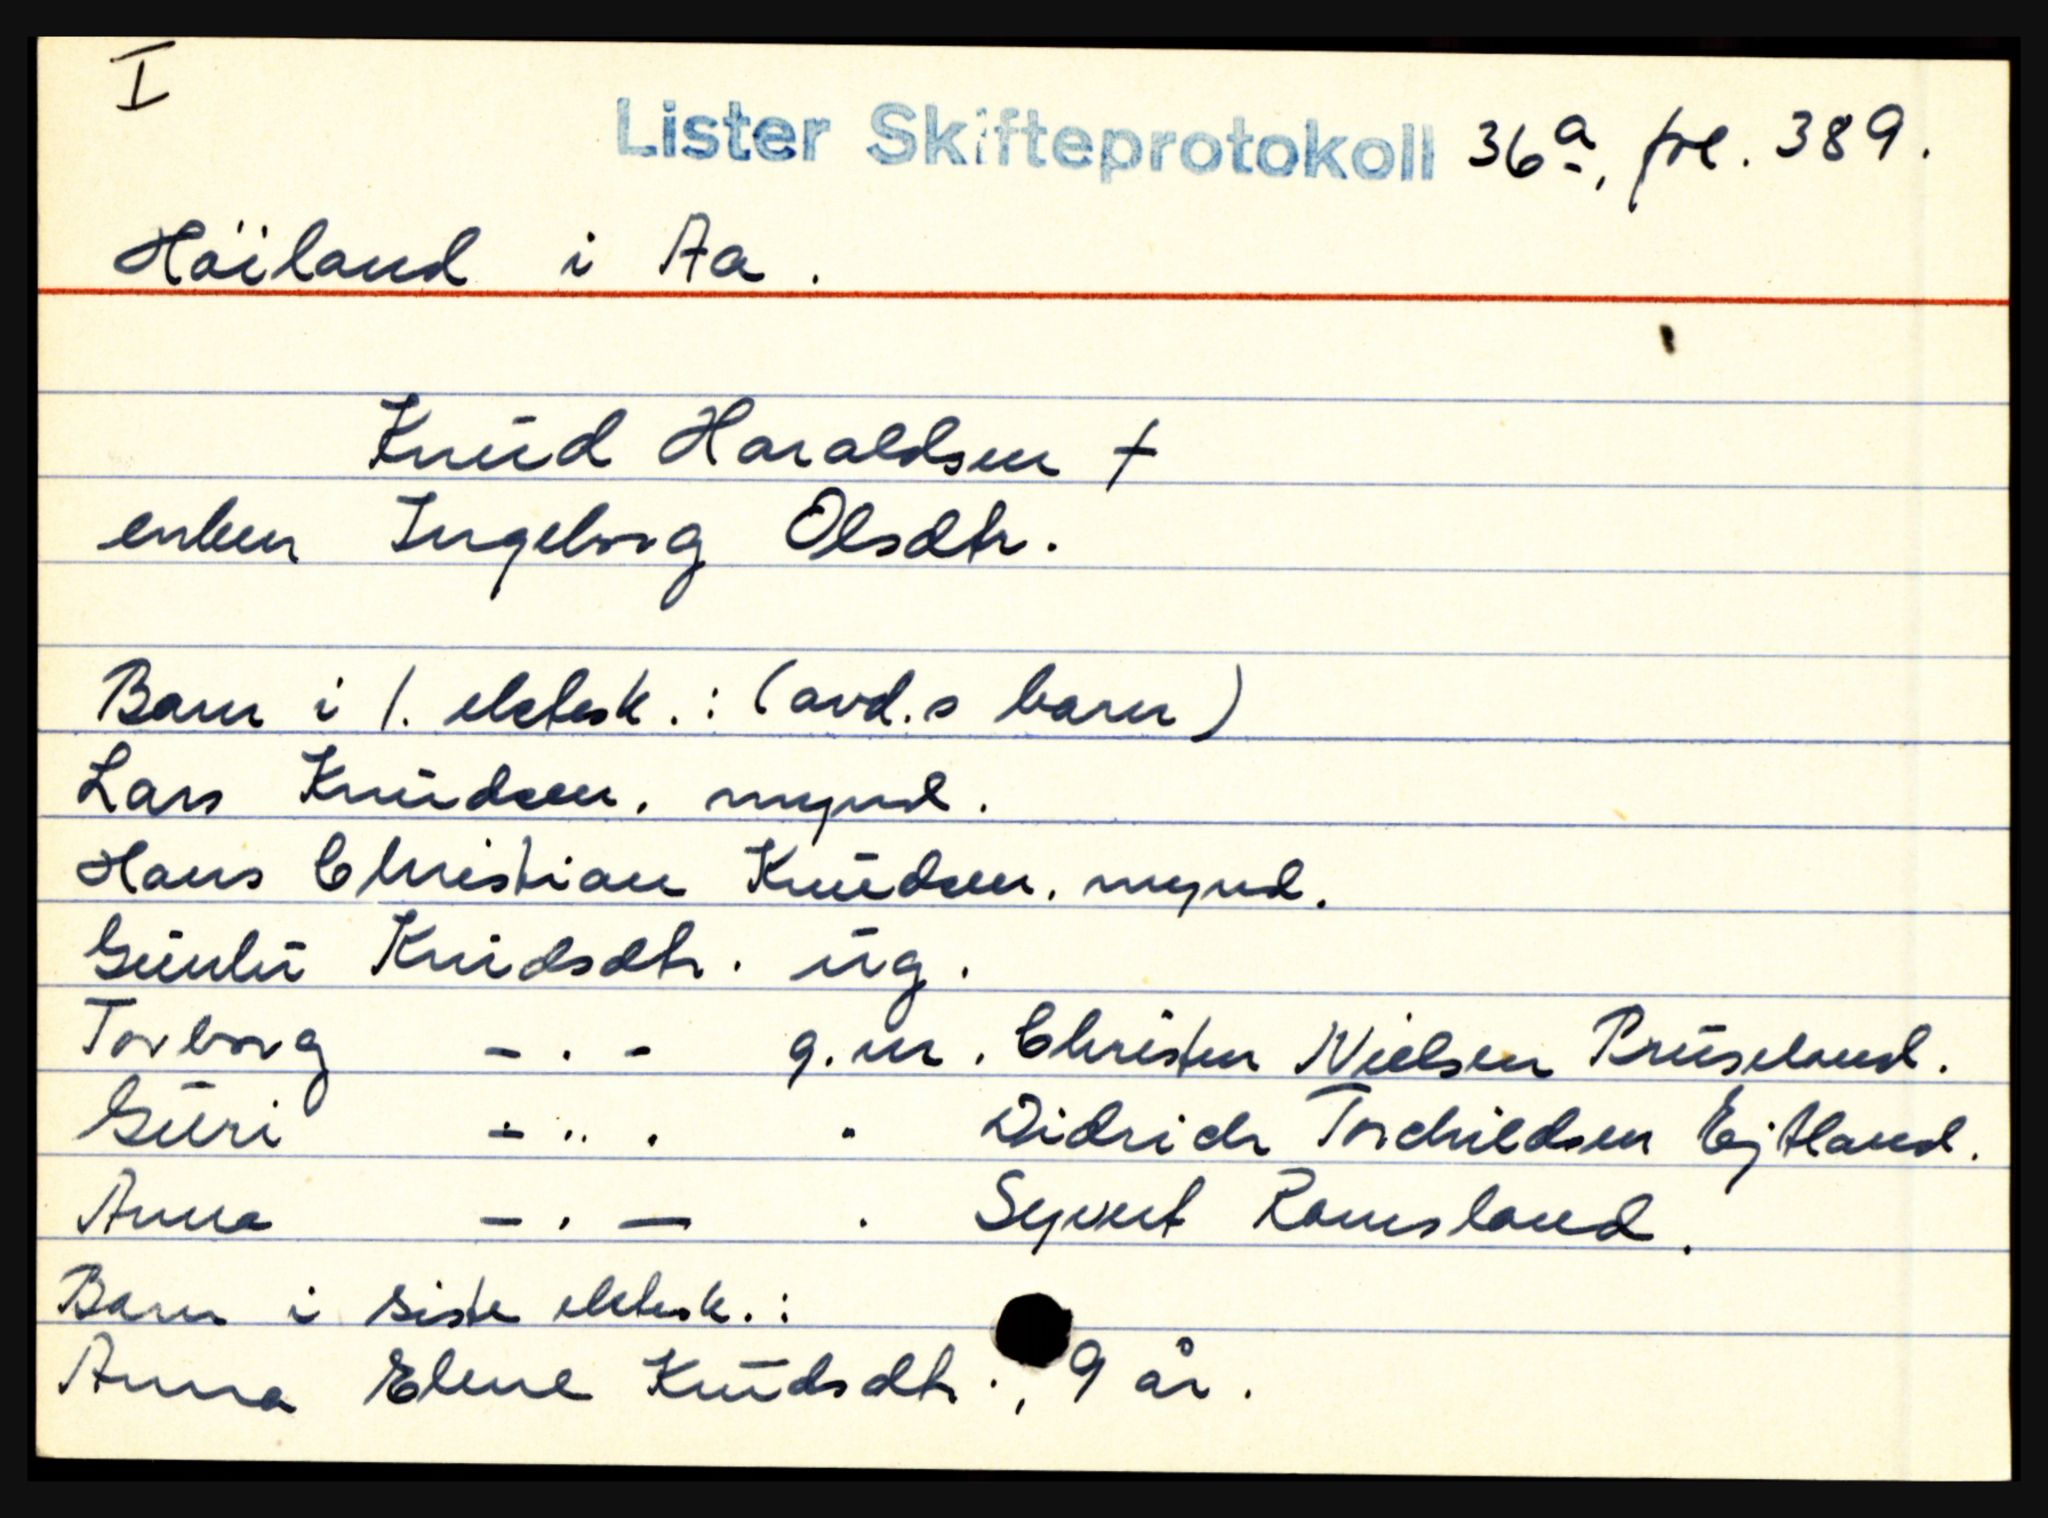 I
Lister Skifteprotokoll 36a, fol. 389.
Höiland i Aa.
Knud Haraldsen †
enken Ingeborg Olsdtr.
Barn i 1. ektesk.: (avd.s barn)
Lars Knudsen. mynd.
Hans Christian Knudsen. mynd.
Gunlu Knudsdtr. ug.
Torborg - . - g.m. Christen Nielsen Pruseland.
Guri - .. . . Didrich Torchildsen Ejtland.
Anna - . - . Syvert Ramsland.
Barn i siste ektesk.:
Anna Elene Knudsdtr., 9 år.